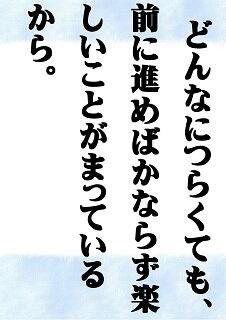 どんなにつらくても、
前に進めばかならず楽
しいことがまっている
から。